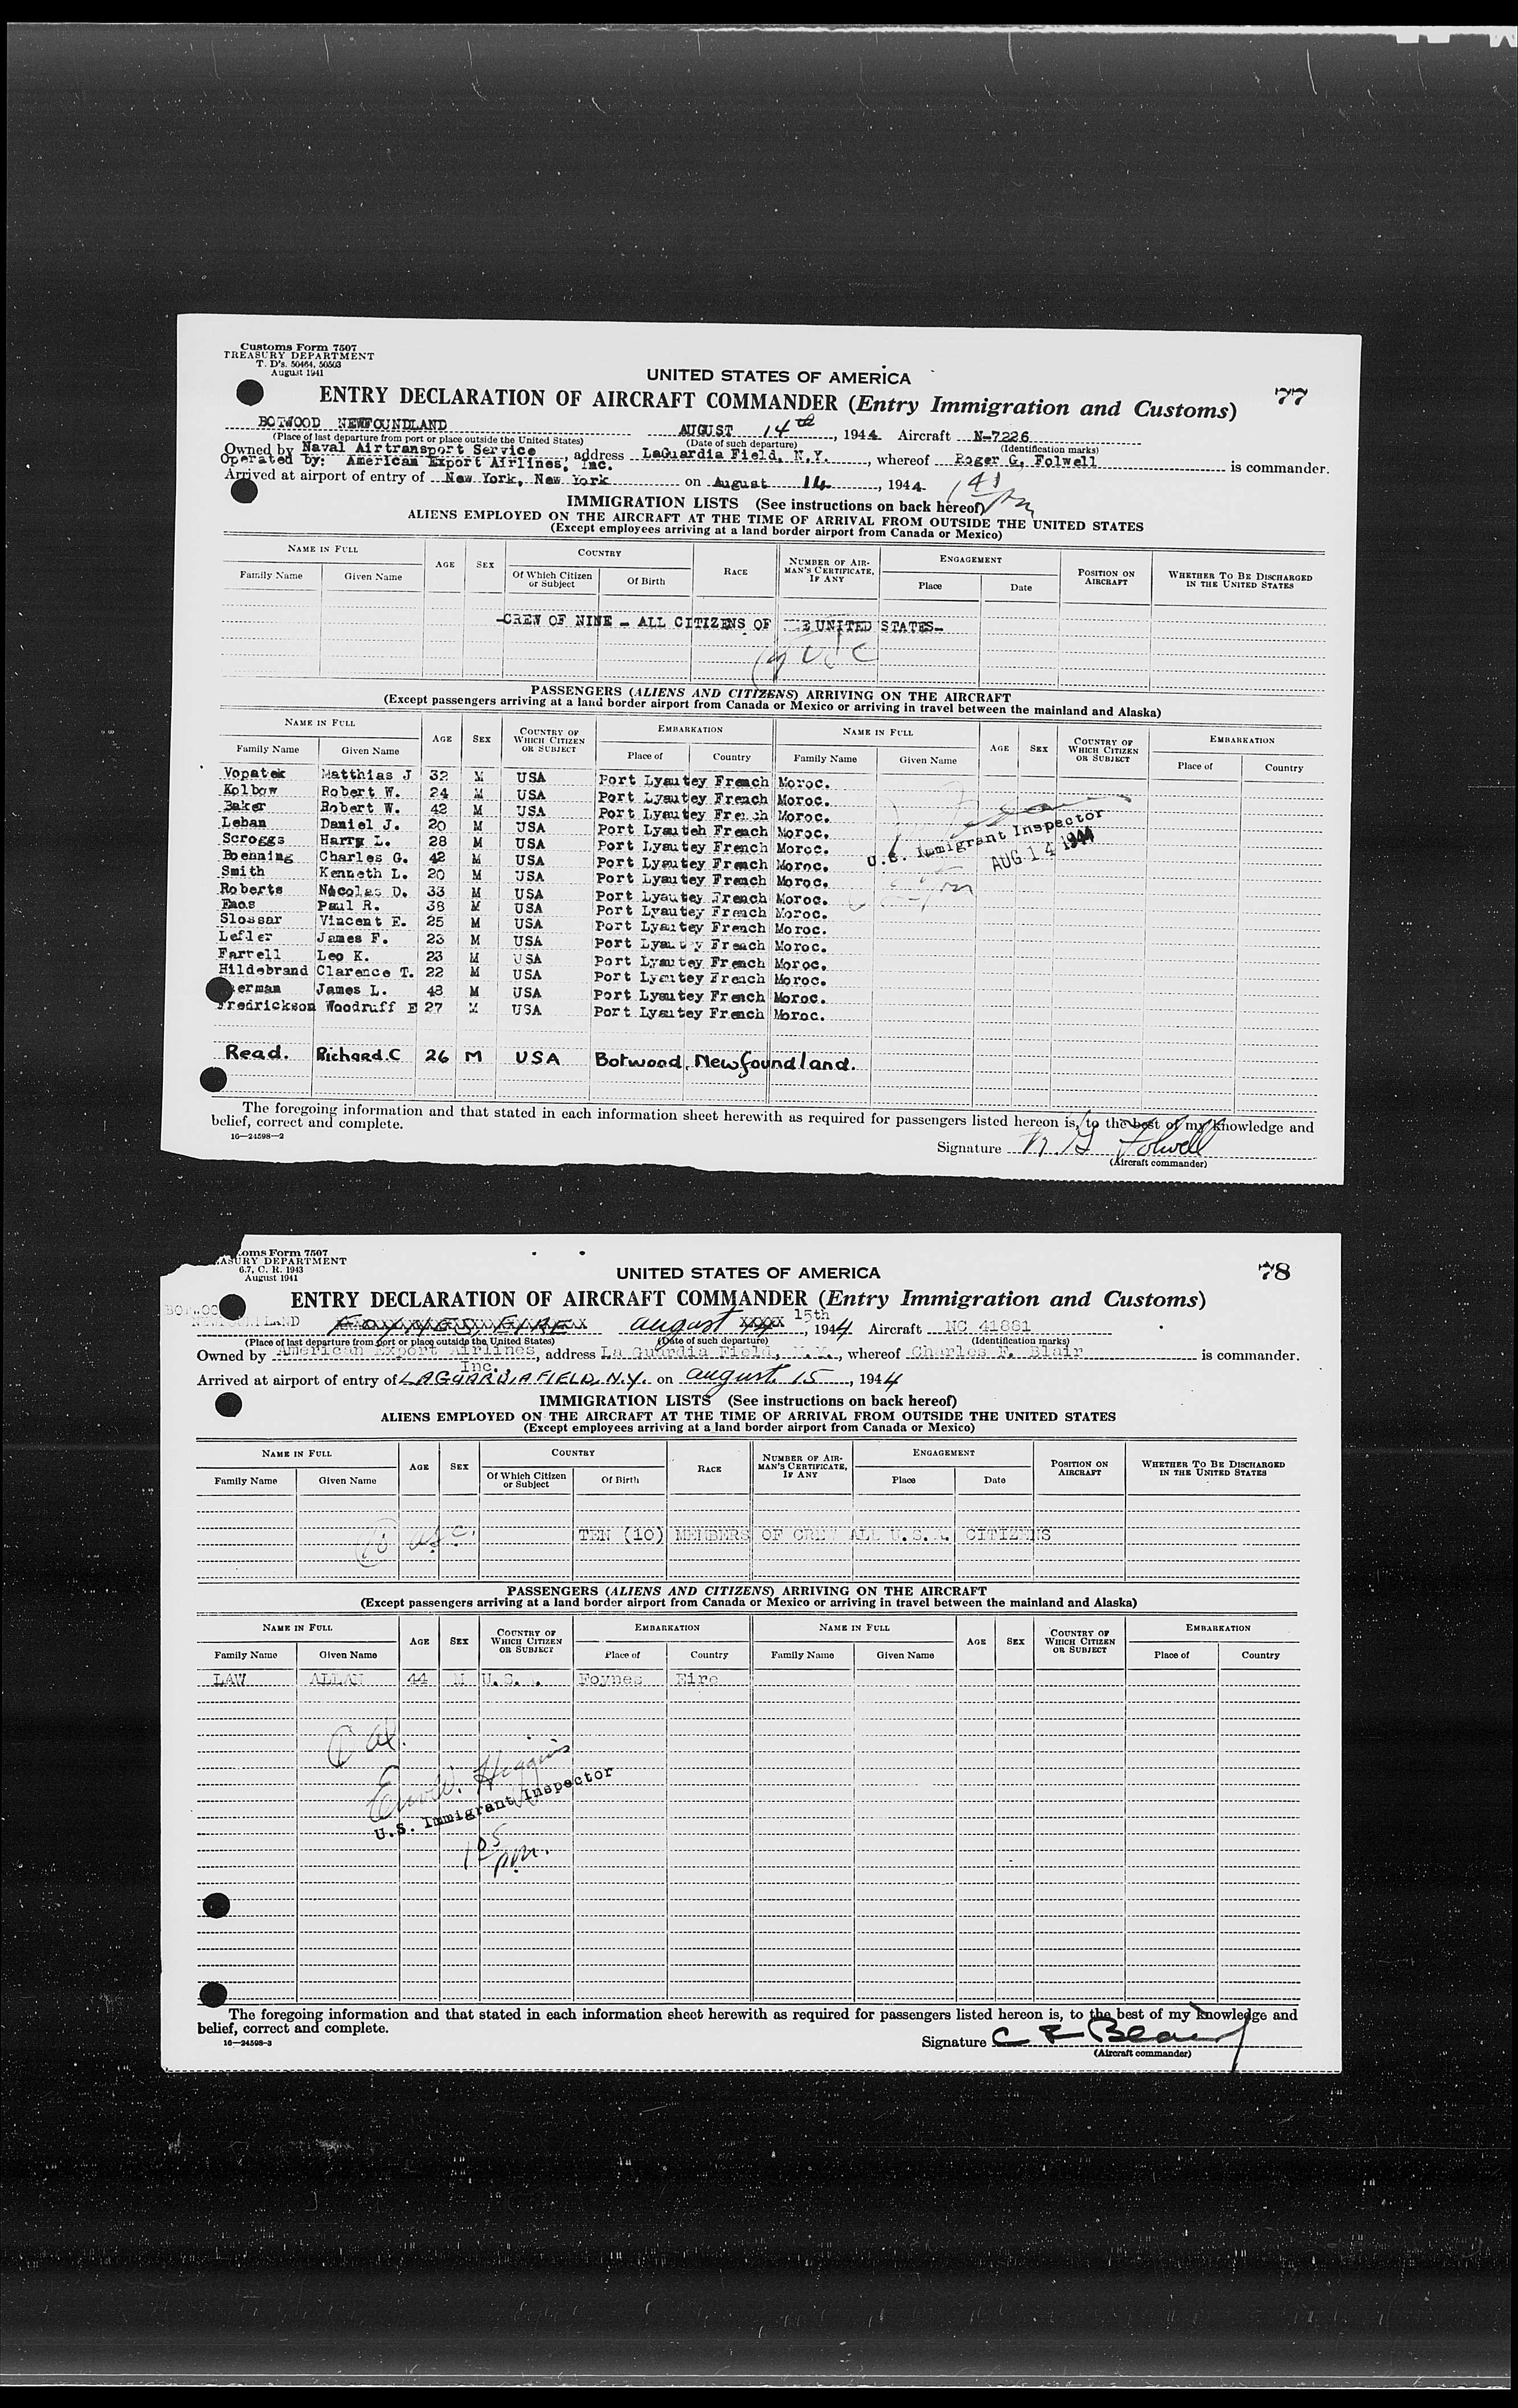 Customs Form 7507
TREASURY DEPARTMENT
T. D's. 50464, 50503
August 1941
UNITED STATES OF AMERICA
77
ENTRY DECLARATION OF AIRCRAFT COMMANDER (Entry Immigration and Customs)
BOTWOOD NEWFOUNDLAND AUGUST 14th, 1944 Aircraft N-7226
(Place of last departure from port or place outside the United States) (Date of such departure) (Identification marks)
Owned by Naval Airtransport Service, address LaGuardia Field, N.Y., whereof Roger G. Folwell is commander.
Operated by: American Export Airlines, Inc.
Arrived at airport of entry of New York, New York on August 14, 1944
IMMIGRATION LISTS (See instructions on back hereof)
ALIENS EMPLOYED ON THE AIRCRAFT AT THE TIME OF ARRIVAL FROM OUTSIDE THE UNITED STATES
(Except employees arriving at a land border airport from Canada or Mexico)
NAME IN FULL AGE SEX COUNTRY RACE NUMBER OF AIRMAN'S CERTIFICATE, IF ANY ENGAGEMENT POSITION ON AIRCRAFT WHETHER TO BE DISCHARGED IN THE UNITED STATES
Family Name Given Name Of Which Citizen or Subject Of Birth Place Date
-CREW OF NINE - ALL CITIZENS OF THE UNITED STATES-
PASSENGERS (ALIENS AND CITIZENS) ARRIVING ON THE AIRCRAFT
(Except passengers arriving at a land border airport from Canada or Mexico or arriving in travel between the mainland and Alaska)
NAME IN FULL AGE SEX COUNTRY OF WHICH CITIZEN OR SUBJECT EMBARKATION NAME IN FULL AGE SEX COUNTRY OF WHICH CITIZEN OR SUBJECT EMBARKATION
Family Name Given Name Place of Country Family Name Given Name Place of Country
Vopatek Matthias J 32 M USA Port Lyautey French Moroc.
Kolbow Robert W. 24 M USA Port Lyautey French Moroc.
Baker Robert W. 42 M USA Port Lyautey French Moroc.
Leban Daniel J. 20 M USA Port Lyauteh French Moroc.
Scroggs Harry L. 28 M USA Port Lyautey French Moroc.
Boenning Charles G. 42 M USA Port Lyautey French Moroc.
Smith Kenneth L. 20 M USA Port Lyautey French Moroc.
Roberts Nicolas D. 33 M USA Port Lyautey French Moroc.
Enos Paul R. 38 M USA Port Lyautey French Moroc.
Slossar Vincent E. 25 M USA Port Lyautey French Moroc.
Lefler James F. 23 M USA Port Lyautey French Moroc.
Farrell Leo K. 23 M USA Port Lyautey French Moroc.
Hildebrand Clarence T. 22 M USA Port Lyautey French Moroc.
erman James L. 48 M USA Port Lyautey French Moroc.
Fredrickson Woodruff E 27 M USA Port Lyautey French Moroc.
U.S. Immigrant Inspector
AUG 14 1944
Read. Richard.C 26 M USA Botwood, Newfoundland.
The foregoing information and that stated in each information sheet herewith as required for passengers listed hereon is, to the best of my knowledge and
belief, correct and complete.
16-24598-2
Signature R G Folwell
(Aircraft commander)
oms Form 7507
ASURY DEPARTMENT
6.7, C. R. 1943
August 1941
UNITED STATES OF AMERICA
78
ENTRY DECLARATION OF AIRCRAFT COMMANDER (Entry Immigration and Customs)
BOTWOO
NEWFOUNDLAND FOYNES, EIRE august 14 15th, 1944 Aircraft NC 41881
(Place of last departure from port or place outside the United States) (Date of such departure) (Identification marks)
Owned by American Export Airlines, Inc., address La Guardia Field, N.Y., whereof Charles F. Blair is commander.
Arrived at airport of entry of LAGUARDIA FIELD, N.Y. on august 15, 1944
IMMIGRATION LISTS (See instructions on back hereof)
ALIENS EMPLOYED ON THE AIRCRAFT AT THE TIME OF ARRIVAL FROM OUTSIDE THE UNITED STATES
(Except employees arriving at a land border airport from Canada or Mexico)
NAME IN FULL AGE SEX COUNTRY RACE NUMBER OF AIRMAN'S CERTIFICATE, IF ANY ENGAGEMENT POSITION ON AIRCRAFT WHETHER TO BE DISCHARGED IN THE UNITED STATES
Family Name Given Name Of Which Citizen or Subject Of Birth Place Date
TEN (10) MEMBERS OF CREW ALL U.S.A. CITIZENS
PASSENGERS (ALIENS AND CITIZENS) ARRIVING ON THE AIRCRAFT
(Except passengers arriving at a land border airport from Canada or Mexico or arriving in travel between the mainland and Alaska)
NAME IN FULL AGE SEX COUNTRY OF WHICH CITIZEN OR SUBJECT EMBARKATION NAME IN FULL AGE SEX COUNTRY OF WHICH CITIZEN OR SUBJECT EMBARKATION
Family Name Given Name Place of Country Family Name Given Name Place of Country
LAW ALLAN 44 M U.S.A. Foynes Eire
U.S. Immigrant Inspector
1 05 pm.
The foregoing information and that stated in each information sheet herewith as required for passengers listed hereon is, to the best of my knowledge and
belief, correct and complete.
16-24598-3
Signature C F Blair
(Aircraft commander)